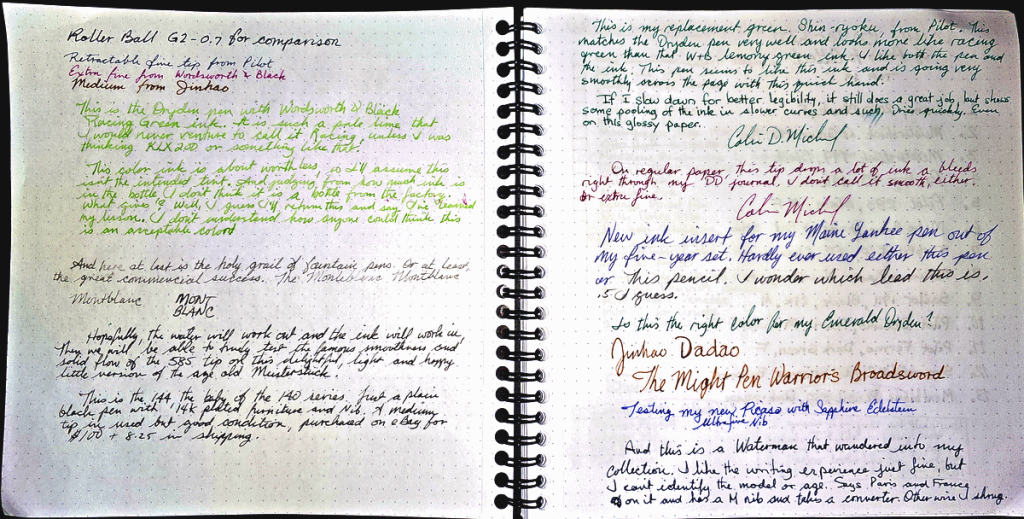 Roller Ball G2-0.7 for comparison
Retractable fine tip from Pilot
Extra Fine from Wordsworth & Black
Medium from Jinhao
This is the Dryden pen with Wordsworth & Black
Racing Green ink. It is such a pale lime that
I would never venture to call it Racing, unless I was
thinking KLX200 or something like that!
This color ink is about worthless, so I'll assume this
isn't the intended tint. And judging from how much ink is
in the bottle, I don't think it is a bottle from the factory.
What gives? Well, I guess I'll return this and say I've learned
my lesson. I don't understand how anyone could think this
is an acceptable color!
And here at last is the holy grail of fountain pens. Or at least,
the great commercial success. The Montblanc Montblanc
Montblanc MONT
BLANC
Hopefully, the water will work out and the ink will work in.
Then we will be able to truly test the famous smoothness and
solid flow of the 585 tip on this delightful, light and happy
little version of the age old Meisterstuck.
This is the 144 the baby of the 140 series. Just a plain
black pen with 14k plated furniture and Nib. A medium
tip in used but good condition, purchased on eBay for
$100 + 8.25 in shipping.
This is my replacement green. Shin-ryoku, from Pilot. This
matches the Dryden pen very well and looks more like racing
green than that W+B lemony green ink. I like both the pen and
the ink. This pen seems to like this ink and is going very
smoothly across the page with this quick hand.
If I slow down for better legibility, it still does a great job, but shows
some pooling of the ink in slower curves and such. Dries quickly. Even
on this glossy paper.
Colin D. Michael
On regular paper this tip drops a lot of ink & bleeds
right through my DD journal. I don't call it smooth, either.
Or extra fine.
Colin Michael
New ink insert for my Maine Yankee pen out of
my five-year set. Hardly ever used either this pen
or This pencil. I wonder which lead this is.
.5 I guess.
Is this the right color for my Emerald Dryden?
Jinhao Dadao
The Might Pen Warrior's Broadsword
Testing my new Picaso with Sapphire Edelstein
Ultrafine Nib
And this is a Waterman that wandered into my
collection. I like the writing experience just fine, but
I can't identify the model or age. Says Paris and France
on it and has a M nib and takes a converter. Otherwise I shrug.